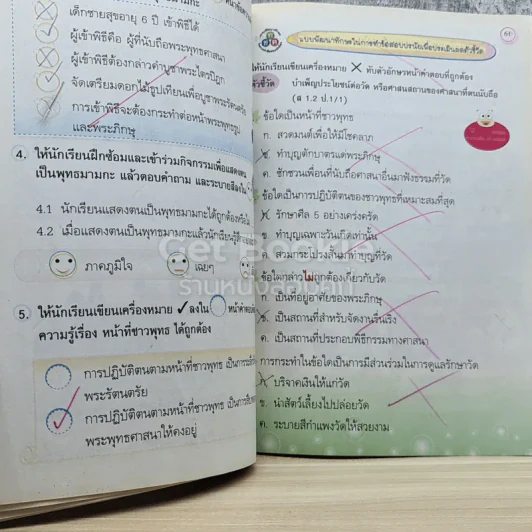 เด็กชายสุขอายุ 6 ปี เข้าพิธีได้
ผู้เข้าพิธีคือ ผู้ที่นับถือพระพุทธศาสนา
ผู้เข้าพิธีต้องกล่าวคำบูชาพระไตรปิฎก
จัดเตรียมดอกไม้ธูปเทียนเพื่อบูชาพระรัตนตรัย
การเข้าพิธีจะต้องกระทำต่อหน้าพระพุทธรูป
และพระภิกษุ
4. ให้นักเรียนฝึกซ้อมและเข้าร่วมกิจกรรมเพื่อแสดงตน
เป็นพุทธมามกะ แล้วตอบคำถาม และระบายสีลงใน
4.1 นักเรียนแสดงตนเป็นพุทธมามกะได้ถูกต้องหรือไม่
4.2 เมื่อแสดงตนเป็นพุทธมามกะแล้วนักเรียนรู้สึก
ภาคภูมิใจ
เฉยๆ
5. ให้นักเรียนเขียนเครื่องหมาย ✓ ลงใน หน้าคำตอบที่
ความรู้เรื่อง หน้าที่ชาวพุทธ ได้ถูกต้อง
การปฏิบัติตนตามหน้าที่ชาวพุทธ เป็นการ
พระรัตนตรัย
การปฏิบัติตนตามหน้าที่ชาวพุทธ เป็นการ
พระพุทธศาสนาให้คงอยู่
61
แบบพัฒนาทักษะในการทำข้อสอบปรนัยเพื่อประเมินผลตัวชี้วัด
ให้นักเรียนเขียนเครื่องหมาย ✕ ทับตัวอักษรหน้าคำตอบที่ถูกต้อง
ตัวชี้วัด บำเพ็ญประโยชน์ต่อวัด หรือศาสนสถานของศาสนาที่ตนนับถือ
(ส 1.2 ป.1/1)
ข้อใดเป็นหน้าที่ชาวพุทธ
ก. สวดมนต์เพื่อให้มีโชคลาภ
ข. ทำบุญตักบาตรแด่พระภิกษุ
ค. ชักชวนเพื่อนที่นับถือศาสนาอื่นมาฟังธรรมที่วัด
ข้อใดเป็นการปฏิบัติตนของชาวพุทธที่เหมาะสมที่สุด
ก. รักษาศีล 5 อย่างเคร่งครัด
ข. ทำบุญเฉพาะวันเกิดเท่านั้น
ค. สวมกระโปรงสั้นมาทำบุญที่วัด
ข้อใดกล่าวไม่ถูกต้องเกี่ยวกับวัด
ก. เป็นที่อยู่อาศัยของพระภิกษุ
ข. เป็นสถานที่สำหรับจัดงานรื่นเริง
ค. เป็นสถานที่ประกอบพิธีกรรมทางศาสนา
การกระทำในข้อใดเป็นการมีส่วนร่วมในการดูแลรักษาวัด
ก. บริจาคเงินให้แก่วัด
ข. นำสัตว์เลี้ยงไปปล่อยวัด
ค. ระบายสีกำแพงวัดให้สวยงาม
Get Bookie
ร้านหนังสือมือหนึ่ง